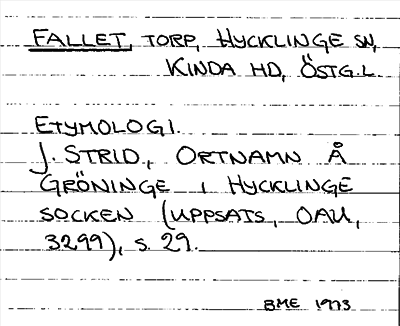 FALLET, TORP, HYCKLINGE SN,
KINDA HD, ÖSTG.L.
ETYMOLOGI.
J. STRID, ORTNAMN Å
GRÖNINGE I HYCKLINGE
SOCKEN (UPPSATS, OAU,
3299), S. 29.
BME 1973